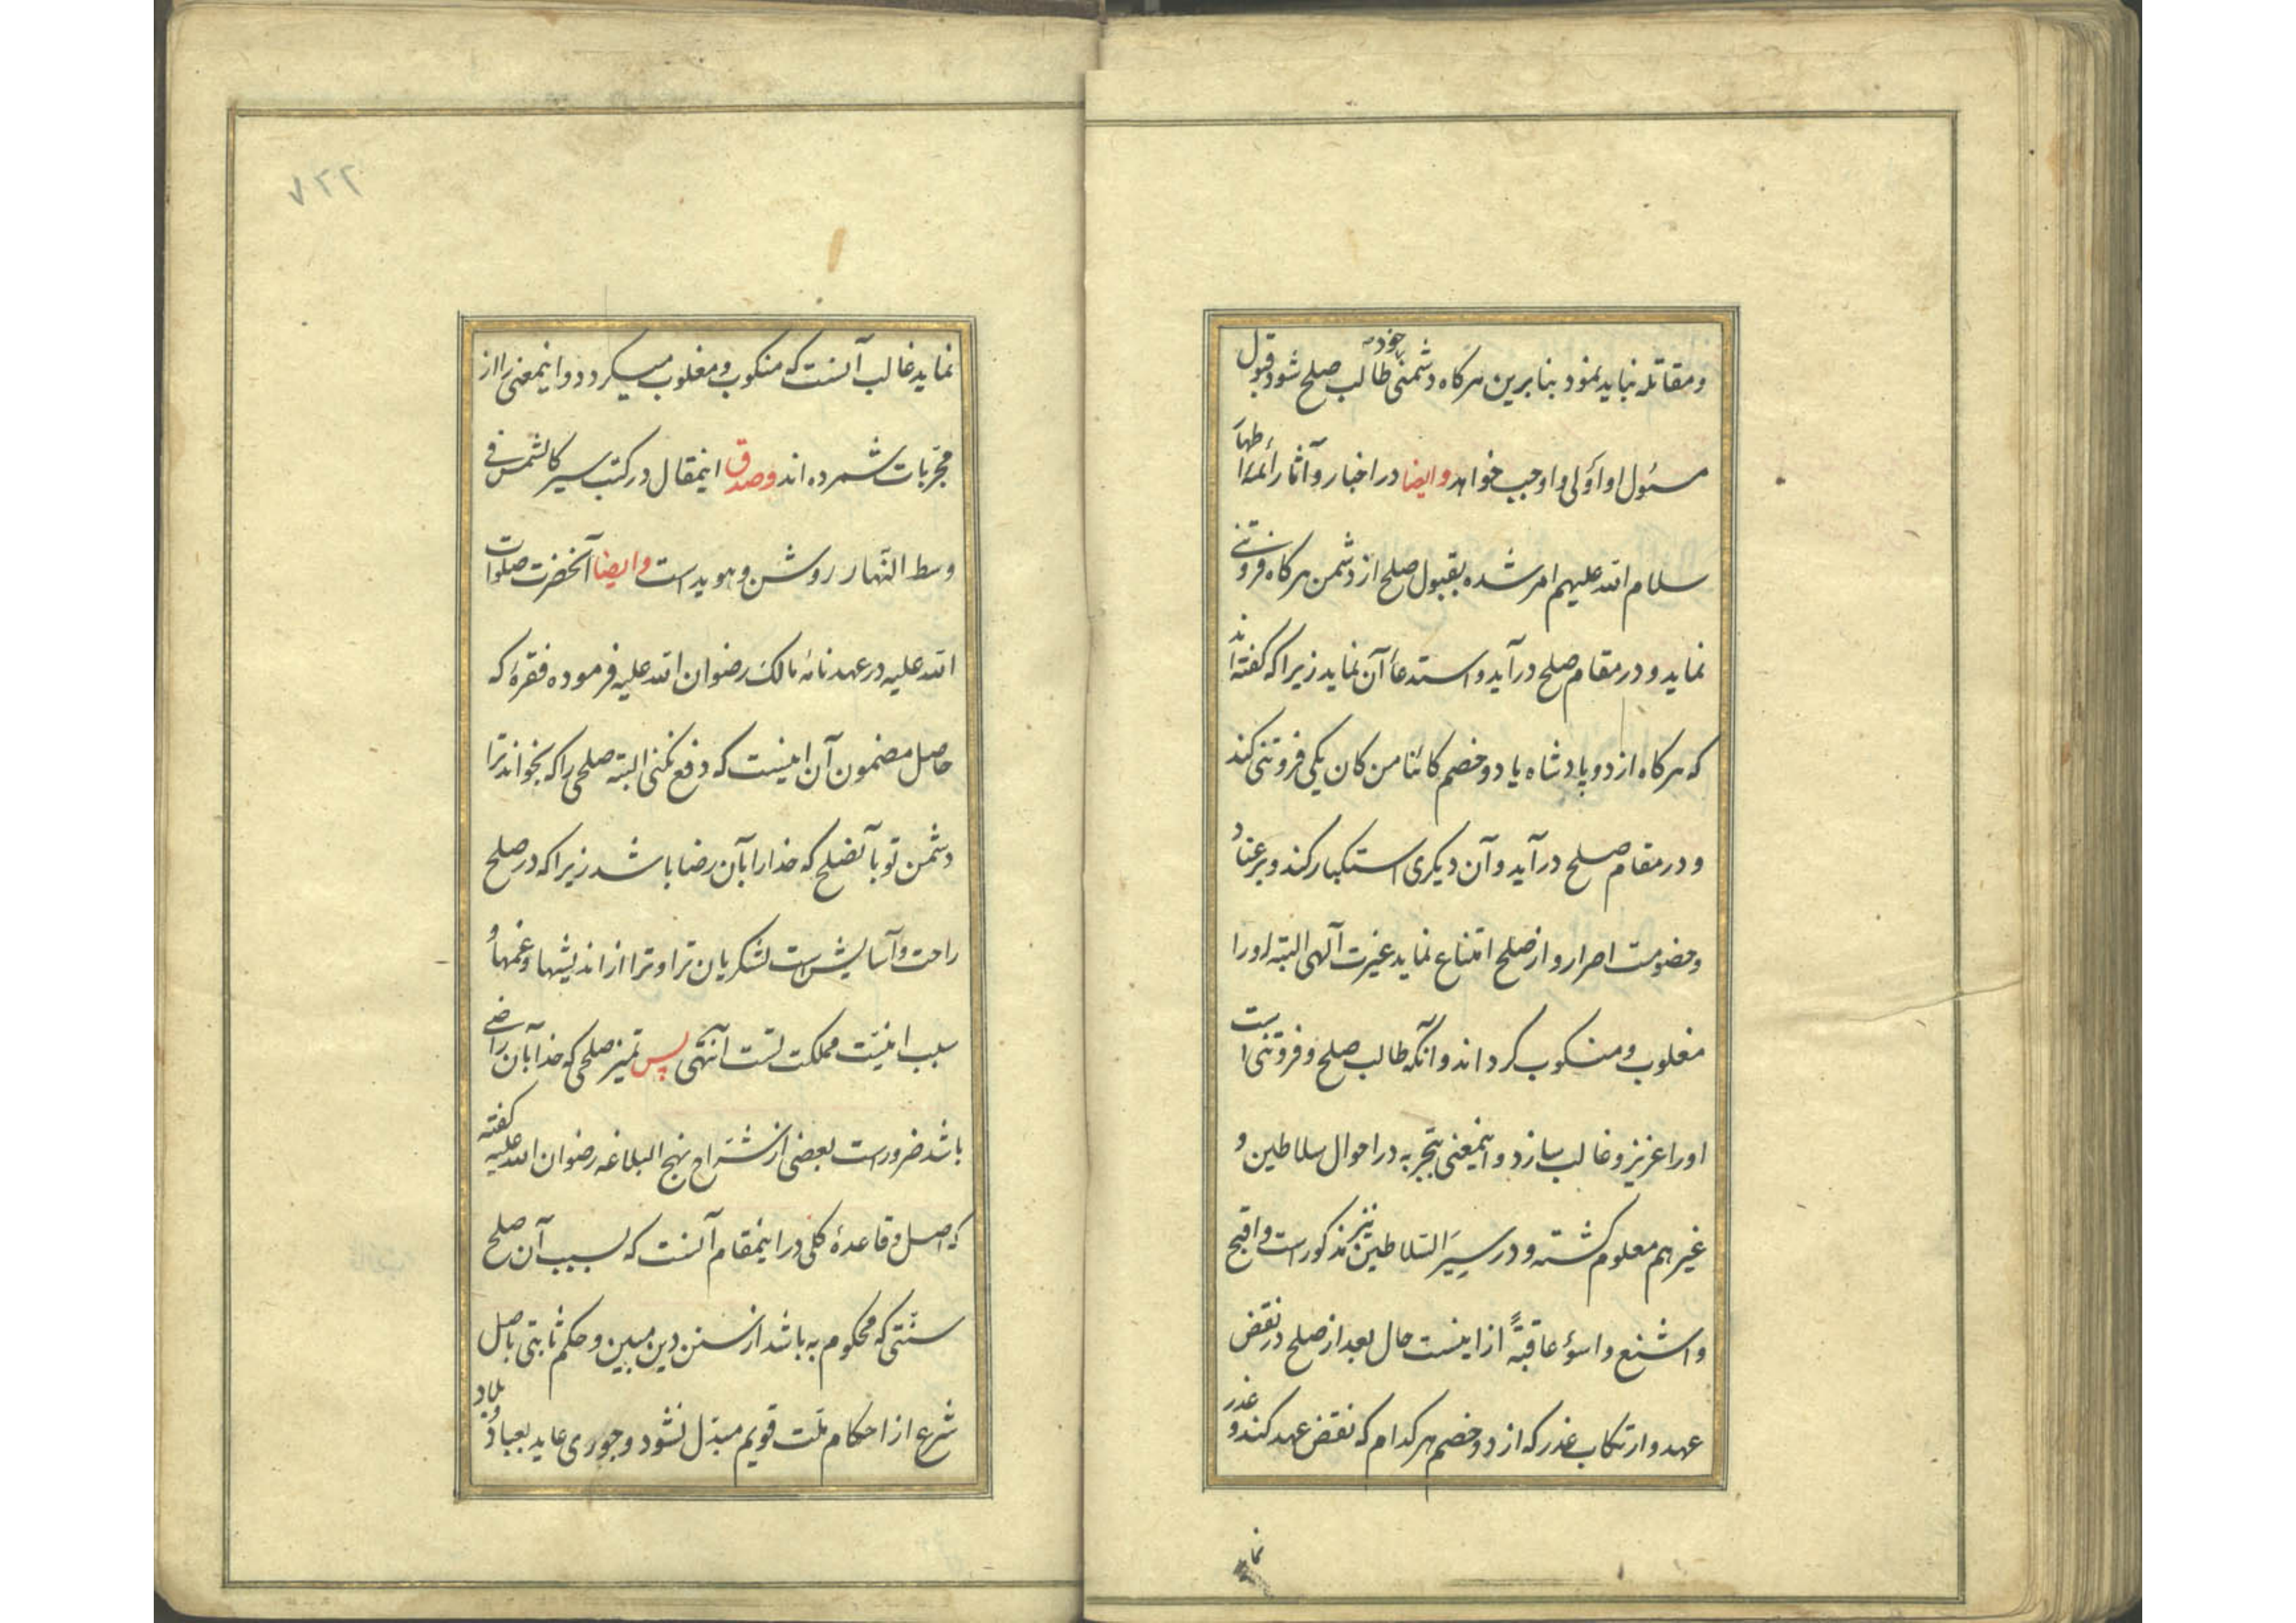 و مقاتله نباید نمود بنابرین هرکاه دشمنی خود طالب صلح شود قبول
مسئول او أولی و اوجب خواهد و ایضا در اخبار و آثار أئمه اطهار
سلام الله علیهم امر شده بقبول صلح از دشمن هرکاه فروتنی
نماید و در مقام صلح درآید و استدعاء آن نماید زیرا که کفته اند
که هرکاه از دو پادشاه یا دو خصم کائنا من کان یکی فروتنی کند
و در مقام صلح درآید و آن دیکری استکبار کند و بر عناد
و خصومت اصرار و از صلح امتناع نماید غیرت آلهی البته او را
مغلوب و منکوب کرداند و آنکه طالب صلح و فروتنی است
او را عزیز و غالب سازد و اینمعنی بتجربه در احوال سلاطین و
غیرهم معلوم کشته و در سیر السلاطین نیز مذکور است و اقبح
و اشنع و اسوء عاقبةً از اینست حال بعد از صلح در نقض
عهد و ارتکاب غدر که از دو خصم هرکدام که نقض عهد کند و غدر
نماید
۷۲۲
نماید غالب آنست که منکوب و مغلوب میکردد و اینمعنی را از
مجربات شمرده اند و صدق اینمقال در کتب سیر کالشمس فی
وسط النهار روشن و هویداست و ایضا آنحضرت صلوات
الله علیه در عهدنامه مالک رضوان الله علیه فرموده فقره که
حاصل مضمون آن اینست که دفع نکنی البته صلحی را که بخواند ترا
دشمن تو بآنصلح که خدا را بآن رضا باشد زیرا که در صلح
راحت و آسایش است لشکریان ترا و ترا از اندیشها و غمها و
سبب امنیت مملکت تست آنتهی پس تمیز صلحی که خدا بآن راضی
باشد ضرورست بعضی از شراح نهج البلاغه رضوان الله علیه کفته
که اصل و قاعدهٔ کلی در اینمقام آنست که بسبب آن صلح
سنتی که محکوم به باشد از سنن دین مبین و حکم ثابتی باصل
شرع از احکام ملت قویم مبدل نشود و جوری عاید بعباد و بلاد